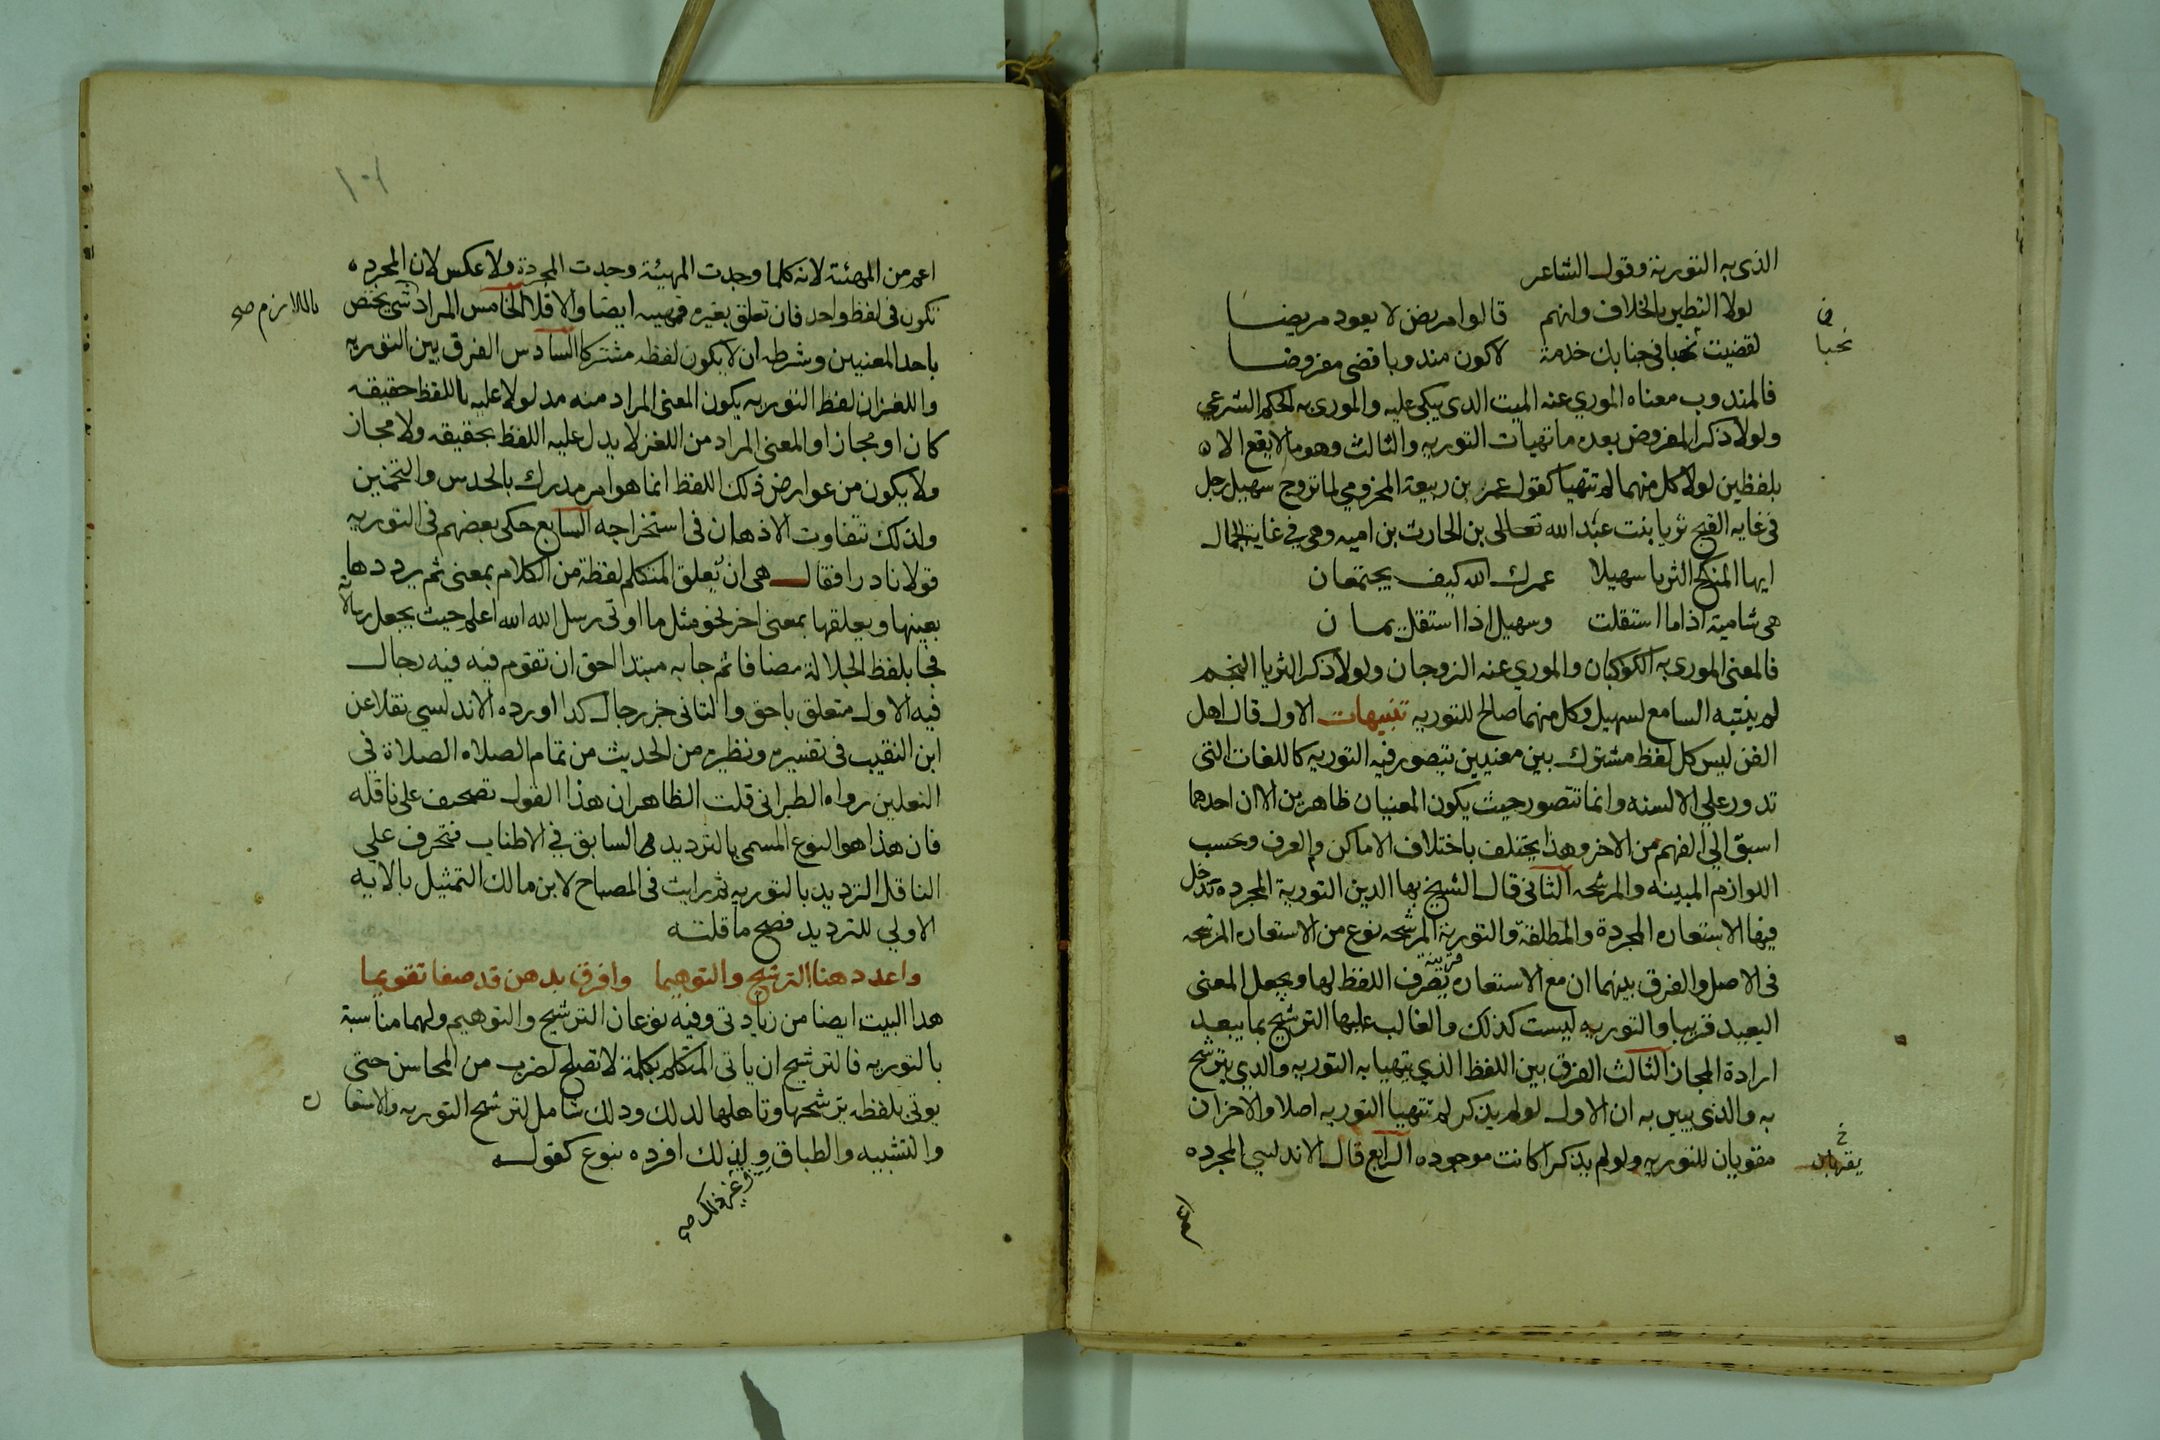 الذى به التورية وقول الشاعر
لولا التطير بالخلاف وانهم قالوا مريض لا يعود مريضا
لقضيت نحبا فى جنابك خدمة لاكون مندوبا قضى مفروضا
نحبا
فالمندوب معناه المورى عنه الميت الدى يبكى عليه والمورى به الحكم الشرعي
ولولا ذكر المفروض بعده ما تهيات التوريه والثالث وهو ما لا يقع الا
بلفظين لولا كل منهما لم تتهيا كقول عمر بن ربيعة المخزومي لما تزوج سهيل رجل
فى غايه القبح ثريا بنت عبد الله تعالى بن الحارث بن اميه وهي في غاية الجمال
ايها المنكح الثريا سهيلا عمرك الله كيف يجتمعان
هى شامية اذا ما استقلت وسهيل اذا استقل يمان
فالمعنى المورى به الكوكبان والمورى عنه الزوجان ولولا ذكر الثريا النجم
لم ينتبه السامع لسهيل وكل منهما صالح للتوريه تنبيهات الاول قال اهل
الفن ليس كل لفظ مشترك بين معنيين يتصور فيه التوريه كاللغات التى
تدور على الالسنه وانما تتصور حيث يكون المعنيان ظاهرين الا ان احدهما
اسبق الى الفهم من الاخر وهذا يختلف باختلاف الاماكن والعرف وبحسب
اللوازم المبينه والمرشحه الثانى قال الشيخ بها الدين التورية المجرده تدخل
فيها الاستعاره المجردة والمطلقة والتورية المرشحه نوع من الاستعاره المرشحه
فى الاصل والفرق بينهما ان مع الاستعاره قرينة تصرف اللفظ لها ويجعل المعنى
البعيد قريبا والتوريه ليست كذلك والغالب عليها الترشيح بما يبعد
ارادة المجاز الثالث الفرق بين اللفظ الذي يتهيا به التوريه والدي يترشح
به والذى يبين به ان الاول لو لم يذكر لم تتهيا التوريه اصلا والاخران
مقويان للتوريه ولو لم يذكرا كانت موجوده الرابع قال الاندلسي المجرده
١٠١
اعم من المهيئة لانه كلما وجدت المهيئة وجدت المجردة ولا عكس لان المجرده
تكون فى لفظ واحد فان تعلق بغيره فمهيىه ايضا والا فلا الخامس المراد شى يختص
باللازم صح
باحد المعنيين وشرطه ان لا يكون لفظه مشتركا السادس الفرق بين التوريه
واللغز ان لفظ التوريه يكون المعنى المراد منه مدلولا عليه باللفظ حقيقه
كان او مجازا والمعنى المراد من اللغز لا يدل عليه اللفظ بحقيقه ولا مجاز
ولا يكون من عوارض ذلك اللفظ انما هو امر مدرك بالحدس والتخمين
ولذلك تتفاوت الاذهان فى استخراجه السابع حكى بعضهم فى التوريه
قولا نادرا فقال هى ان يعلق المتكلم لفظة من الكلام بمعنى ثم يرددها
بعينها ويعلقها بمعنى اخر نحو مثل ما اوتى رسل الله الله اعلم حيث يجعل رسالاته
فجا بلفظ الجلالة مضافا ثم جا به مبتدا احق ان تقوم فيه فيه رجال
فيه الاول متعلق باحق والثانى خبر رجال كدا اورده الاندلسي نقلا عن
ابن النقيب فى تفسيره ونظيره من الحديث من تمام الصلاه الصلاة في
النعلين رواه الطبرانى قلت الظاهر ان هذا القول تصحيف على ناقله
فان هذا هو النوع المسمى بالترديد السابق في الاطناب فتحرف على
الناقل الترديد بالتوريه ثم رايت فى المصباح لابن مالك التمثيل بالايه
الاولي للترديد فصح ما قلته
واعدد هنا الترشيح والتوهيما وافرق بذهن قد صفا تقويما
هدا البيت ايضا من زيادتى وفيه نوعان الترشيح والتوهيم ولهما مناسبة
بالتوريه فالترشيح ان ياتى المتكلم بكلمة لا تصلح لضرب من المحاسن حتى
يوتى بلفظه ترشحها وتاهلها لدلك ودلك شامل لترشيح التوريه والاستعا
والتشبيه والطباق ولذلك افرده بنوع كقوله
وغير ذلك صح